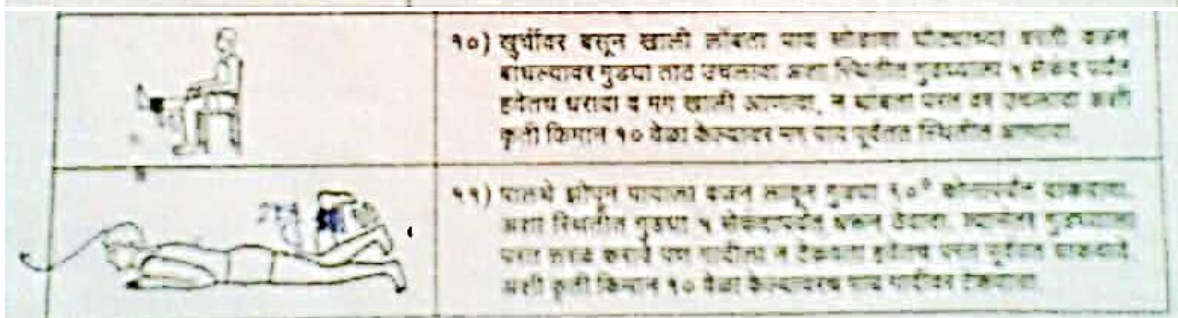 १०) खुर्चीवर बसून खाली लोंबता पाय सोडावा घोट्याच्या वरती वजन
बांधल्यावर गुडघा ताठ उचलावा अशा स्थितीत गुडघ्याला ५ सेकंद पर्यंत
हवेतच धरावा व मग खाली आणावा, न थांबता परत वर उचलावा अशी
कृती किमान १० वेळा केल्यावर मग पाय पूर्ववत स्थितीत आणावा.
११) पालथे झोपून पायाला वजन लावून गुडघा ९०° कोनापर्यंत वाकवावा.
अशा स्थितीत गुडघा ५ सेकंदापर्यंत धरून ठेवावा. त्यानंतर गुडघ्याला
परत सरळ करावे पण गादीला न टेकवता हवेतच परत पूर्ववत वाकवावे.
अशी कृती किमान १० वेळा केल्यावरच पाय गादीवर टेकवावा.